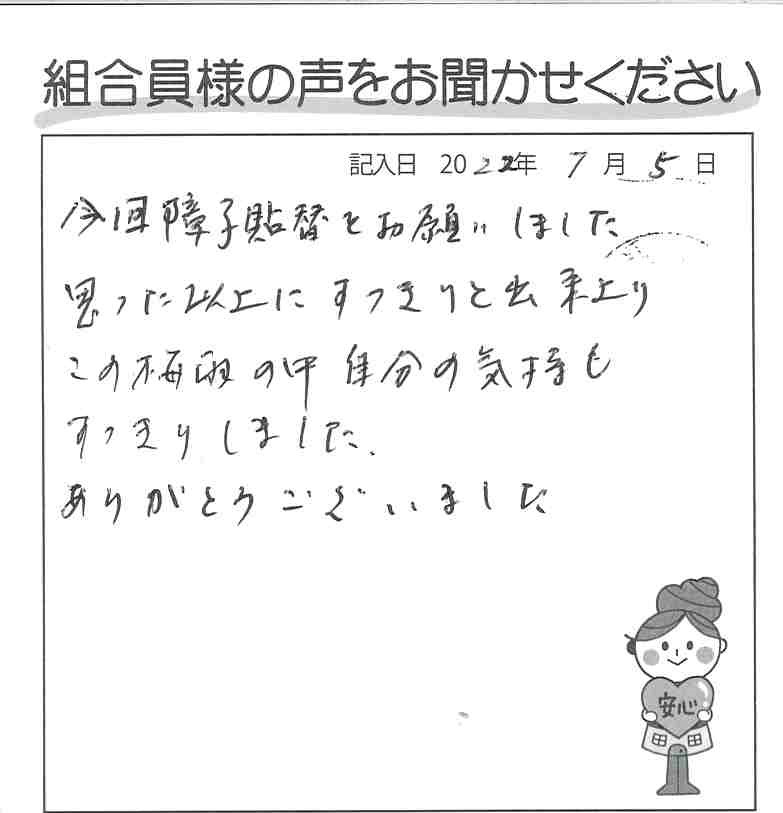 組合員様の声をお聞かせください
記入日 2022年 7月 5日
今回障子貼替をお願いしました
思った以上にすっきりと出来上り
この梅雨の中自分の気持も
すっきりしました、
ありがとうございました
安心